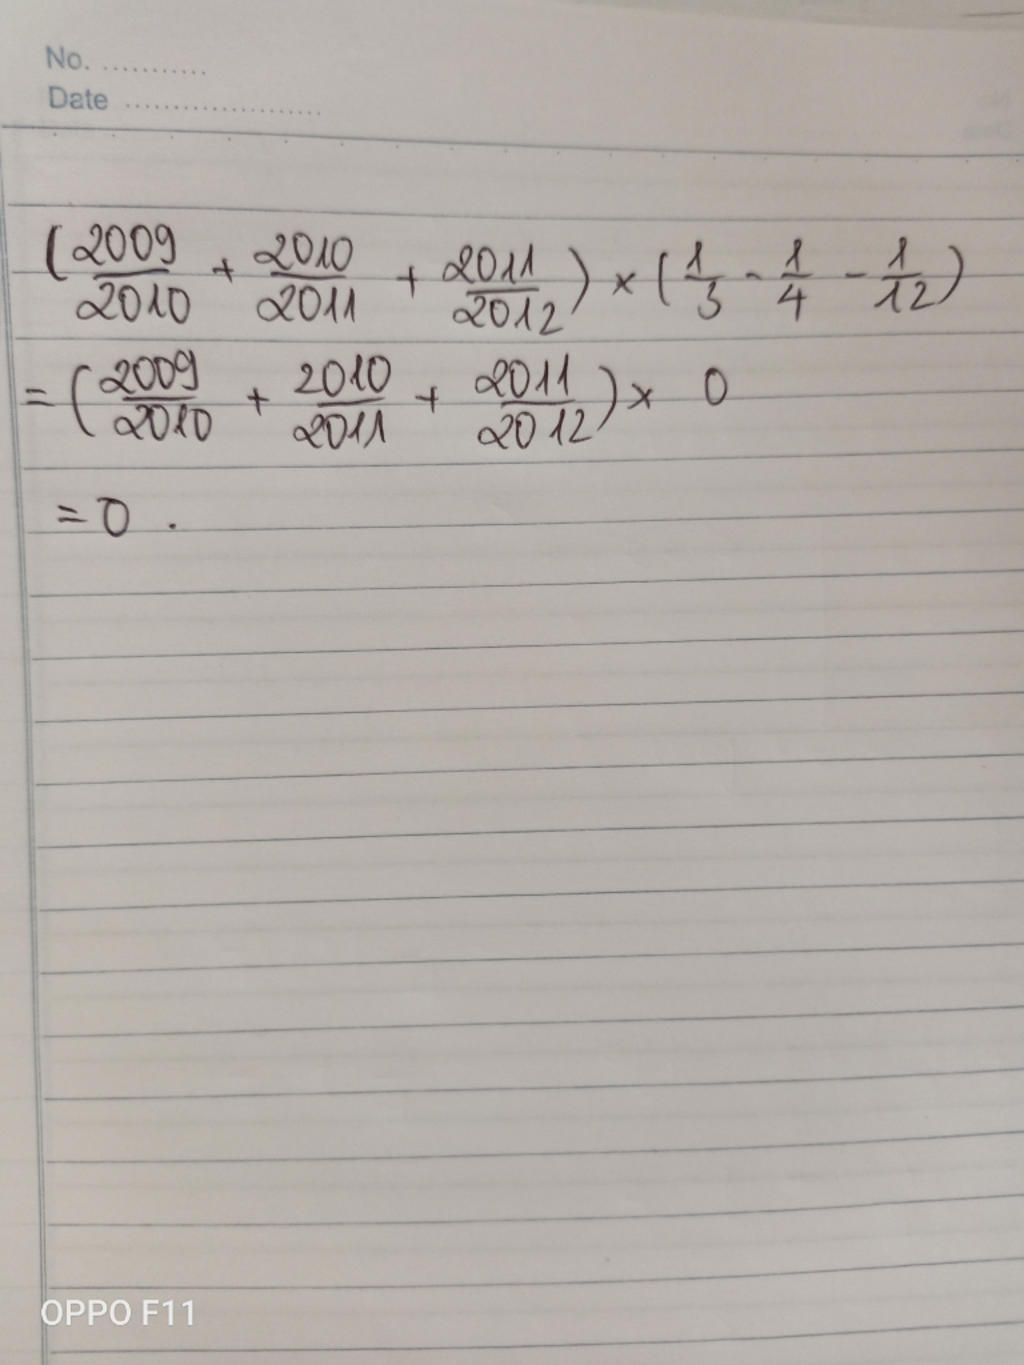 No. ...........
Date .....................
(2009/2010 + 2010/2011 + 2011/2012) × (1/3 - 1/4 - 1/12)
= (2009/2010 + 2010/2011 + 2011/2012) × 0
= 0 .
OPPO F11